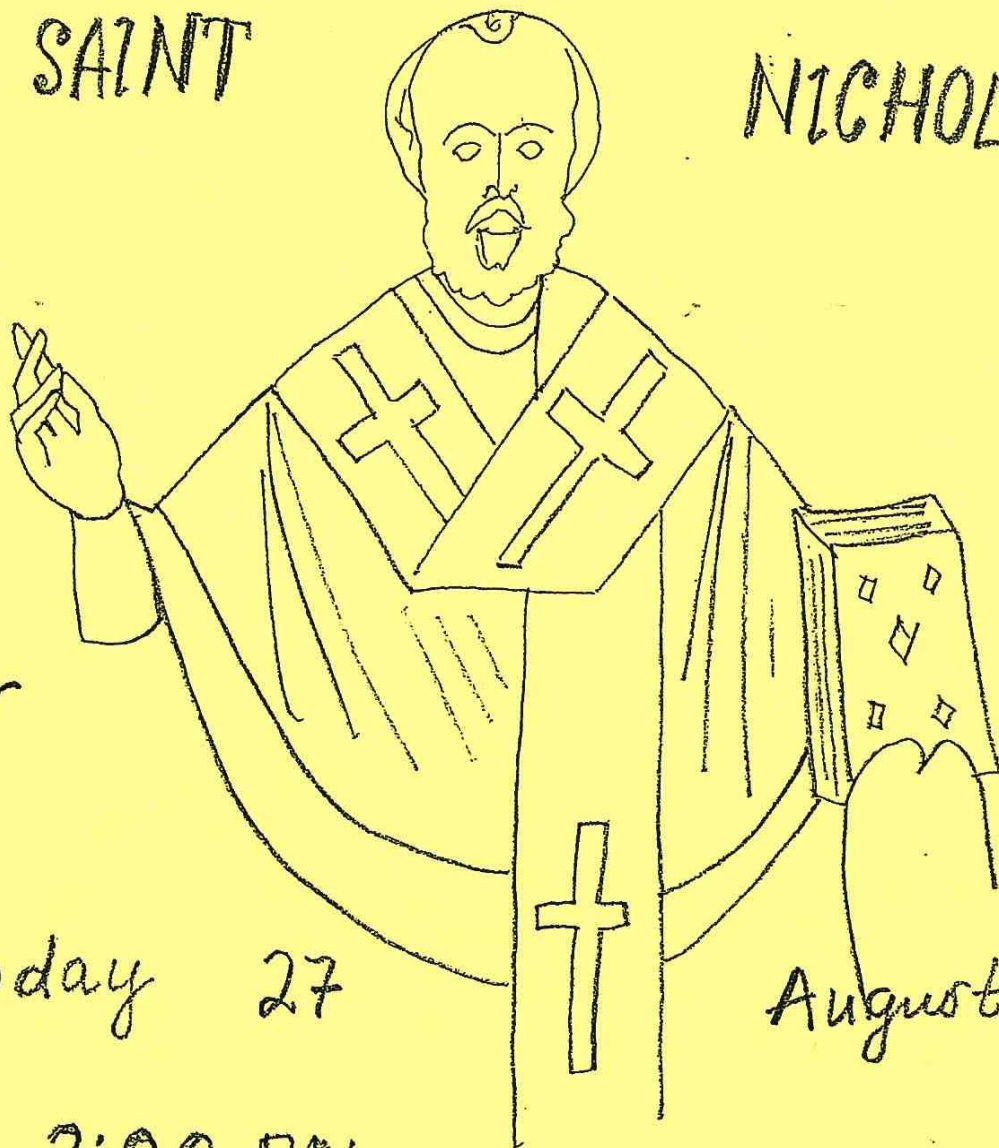 SAINT NICHOL
day 27 August